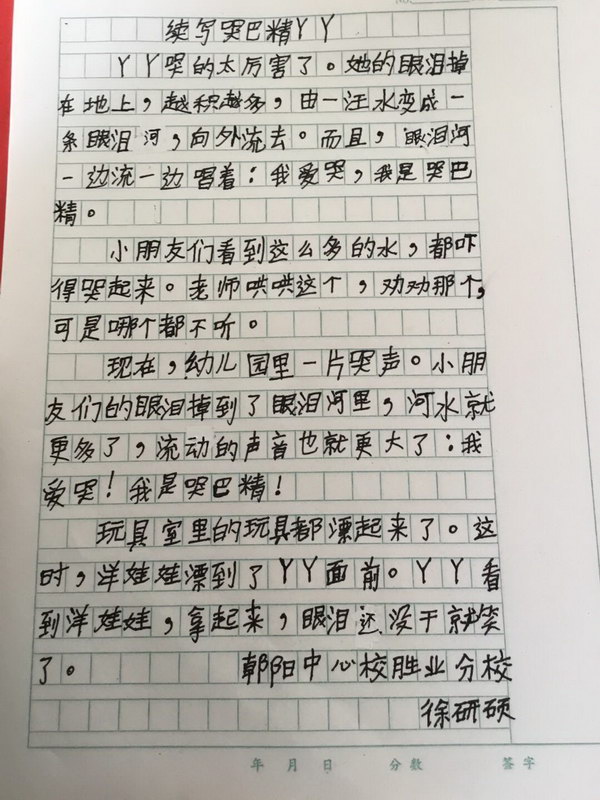 续写哭巴精丫丫
丫丫哭的太厉害了。她的眼泪掉
在地上，越积越多，由一汪水变成一
条眼泪河，向外流去。而且，眼泪河
一边流一边唱着：我爱哭，我是哭巴
精。
小朋友们看到这么多的水，都吓
得哭起来。老师哄哄这个，劝劝那个，
可是哪个都不听。
现在，幼儿园里一片哭声。小朋
友们的眼泪掉到了眼泪河里，河水就
更多了，流动的声音也就更大了：我
爱哭！我是哭巴精！
玩具室里的玩具都漂起来了。这
时，洋娃娃漂到了丫丫面前。丫丫看
到洋娃娃，拿起来，眼泪还没干就笑
了。 朝阳中心校胜业分校
徐研硕
年 月 日 分数 签字